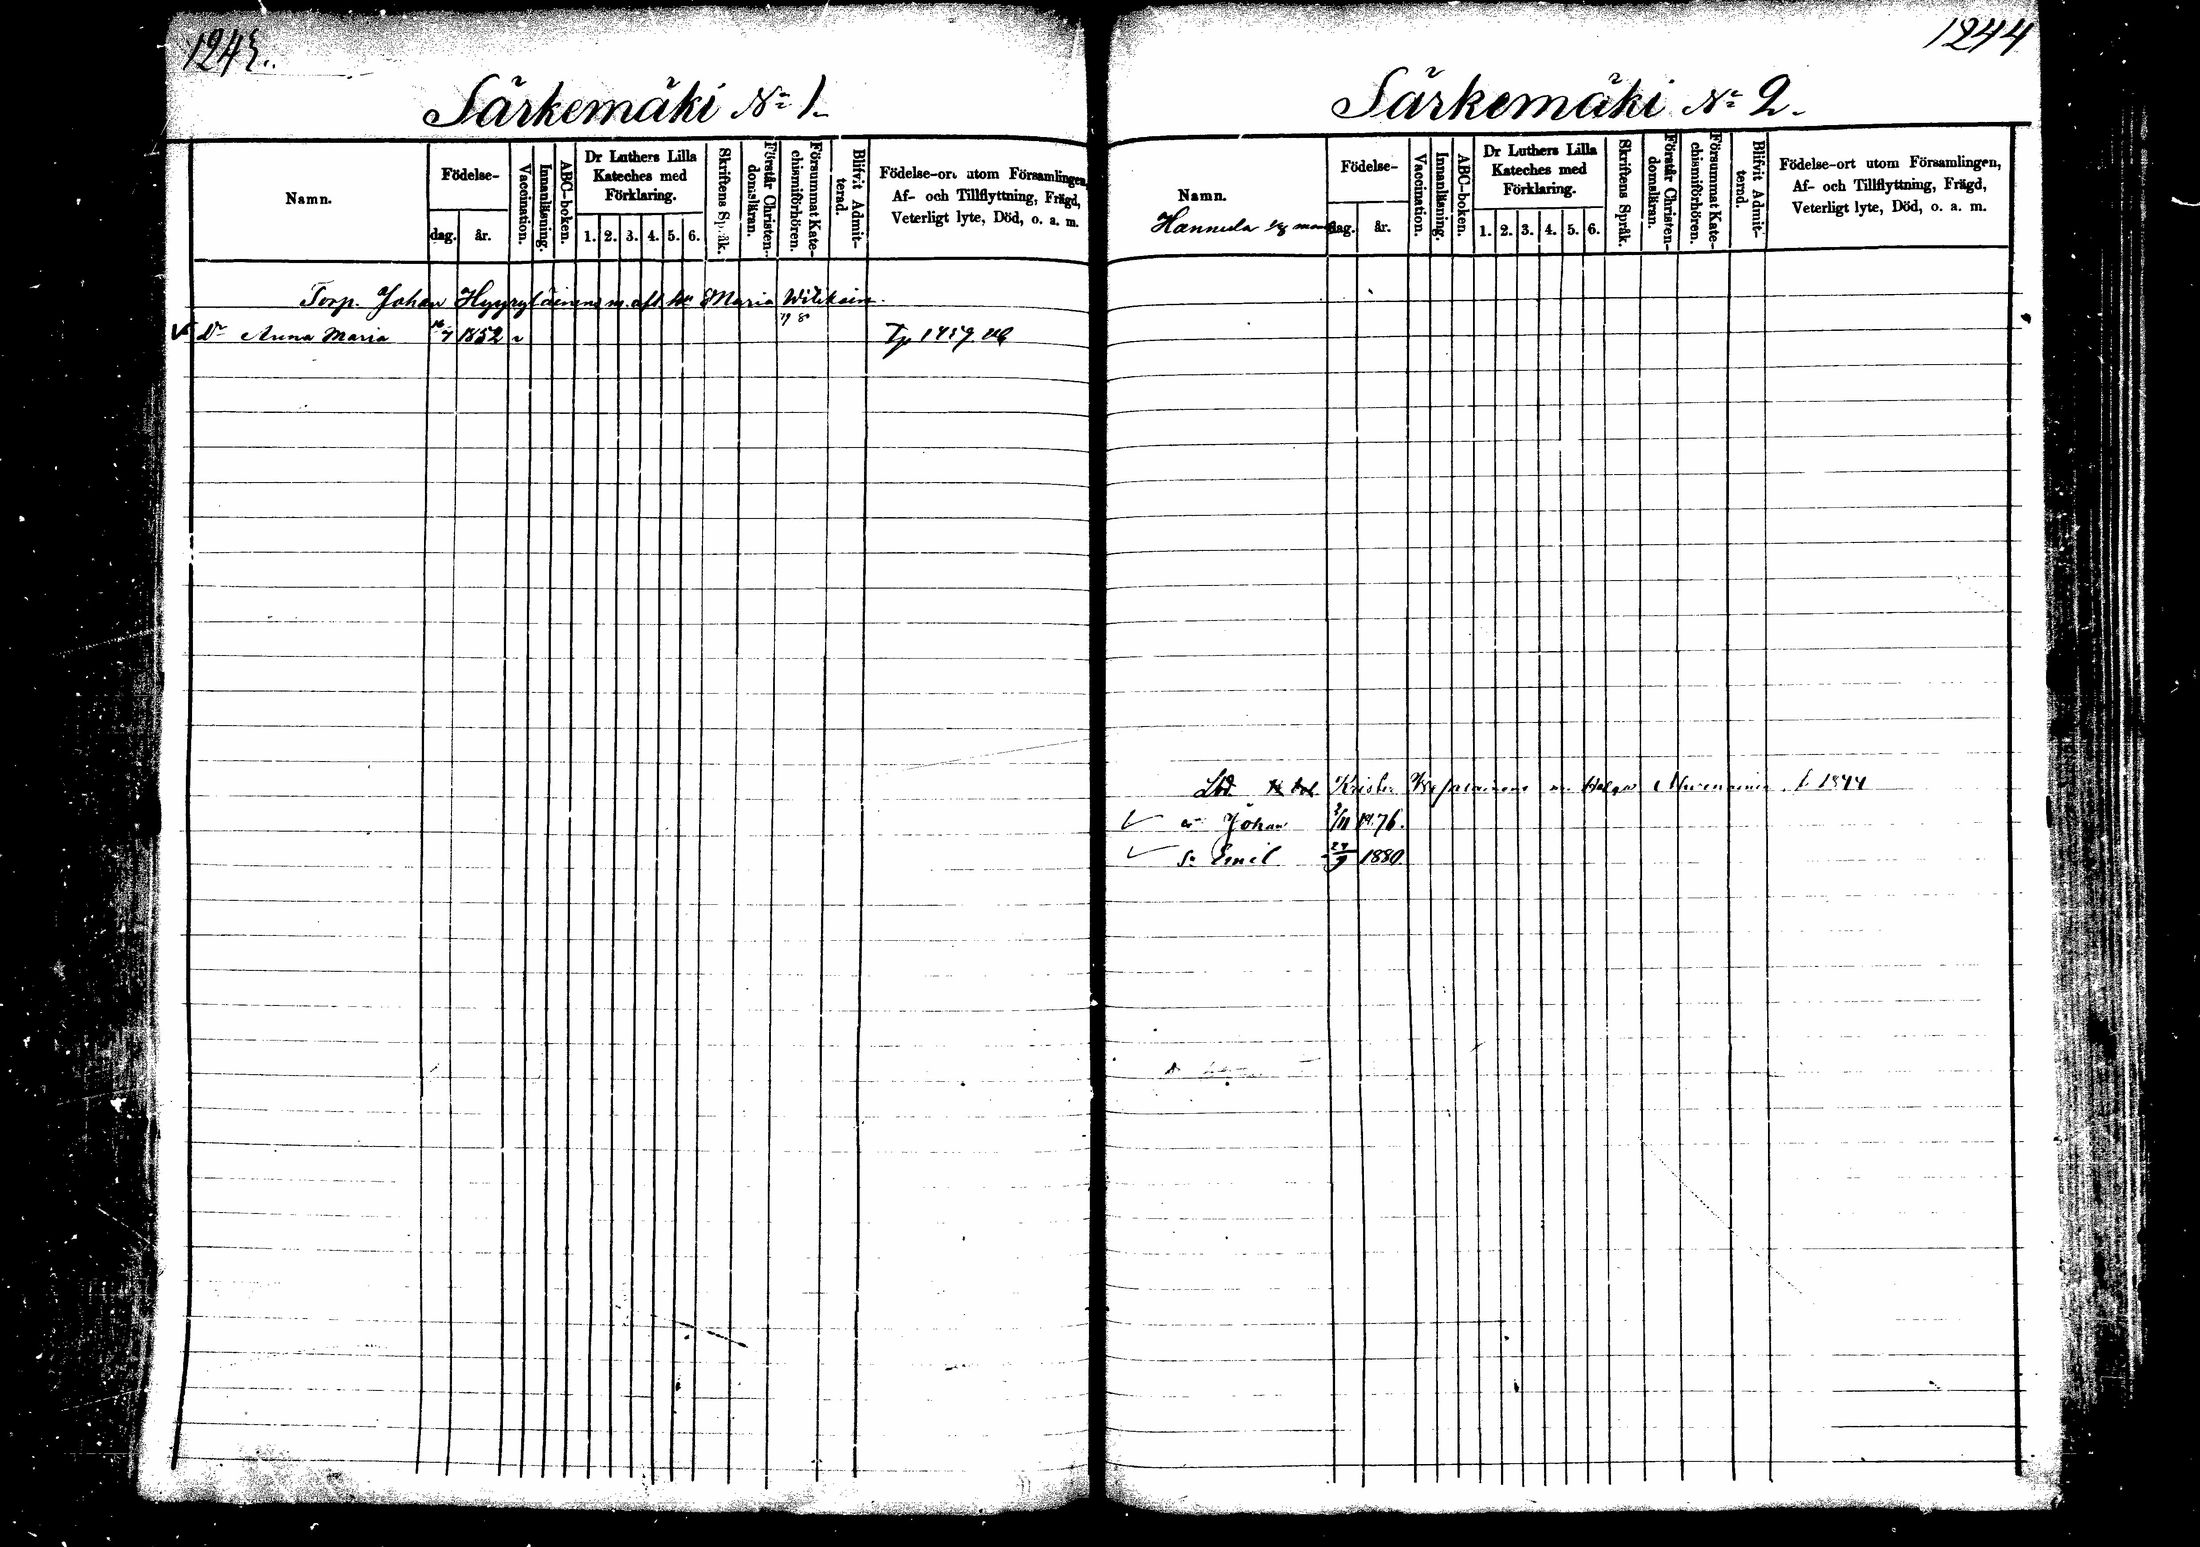 1243.
Särkemäki No 1.
Namn.
Födelse-
dag.
år.
Vaccination.
Innanläsning.
ABC-boken.
Dr Luthers Lilla
Kateches med
Förklaring.
1. 2. 3. 4. 5. 6.
Skriftens Språk.
Förstår Christen-
domsläran.
Försummat Kate-
chismiförhören.
Blifvit Admit-
terad.
Födelse-ort utom Församlingen,
Af- och Tillflyttning, Frägd,
Veterligt lyte, Död, o. a. m.
Torp. Johan Maria
Dr Anna Maria 1852
1244
Särkemäki No 2.
Namn.
Hannula
Födelse-
dag.
år.
Vaccination.
Innanläsning.
ABC-boken.
Dr Luthers Lilla
Kateches med
Förklaring.
1. 2. 3. 4. 5. 6.
Skriftens Språk.
Förstår Christen-
domsläran.
Försummat Kate-
chismiförhören.
Blifvit Admit-
terad.
Födelse-ort utom Församlingen,
Af- och Tillflyttning, Frägd,
Veterligt lyte, Död, o. a. m.
Krister f. 1844
Johan 76.
S. Emil 1880